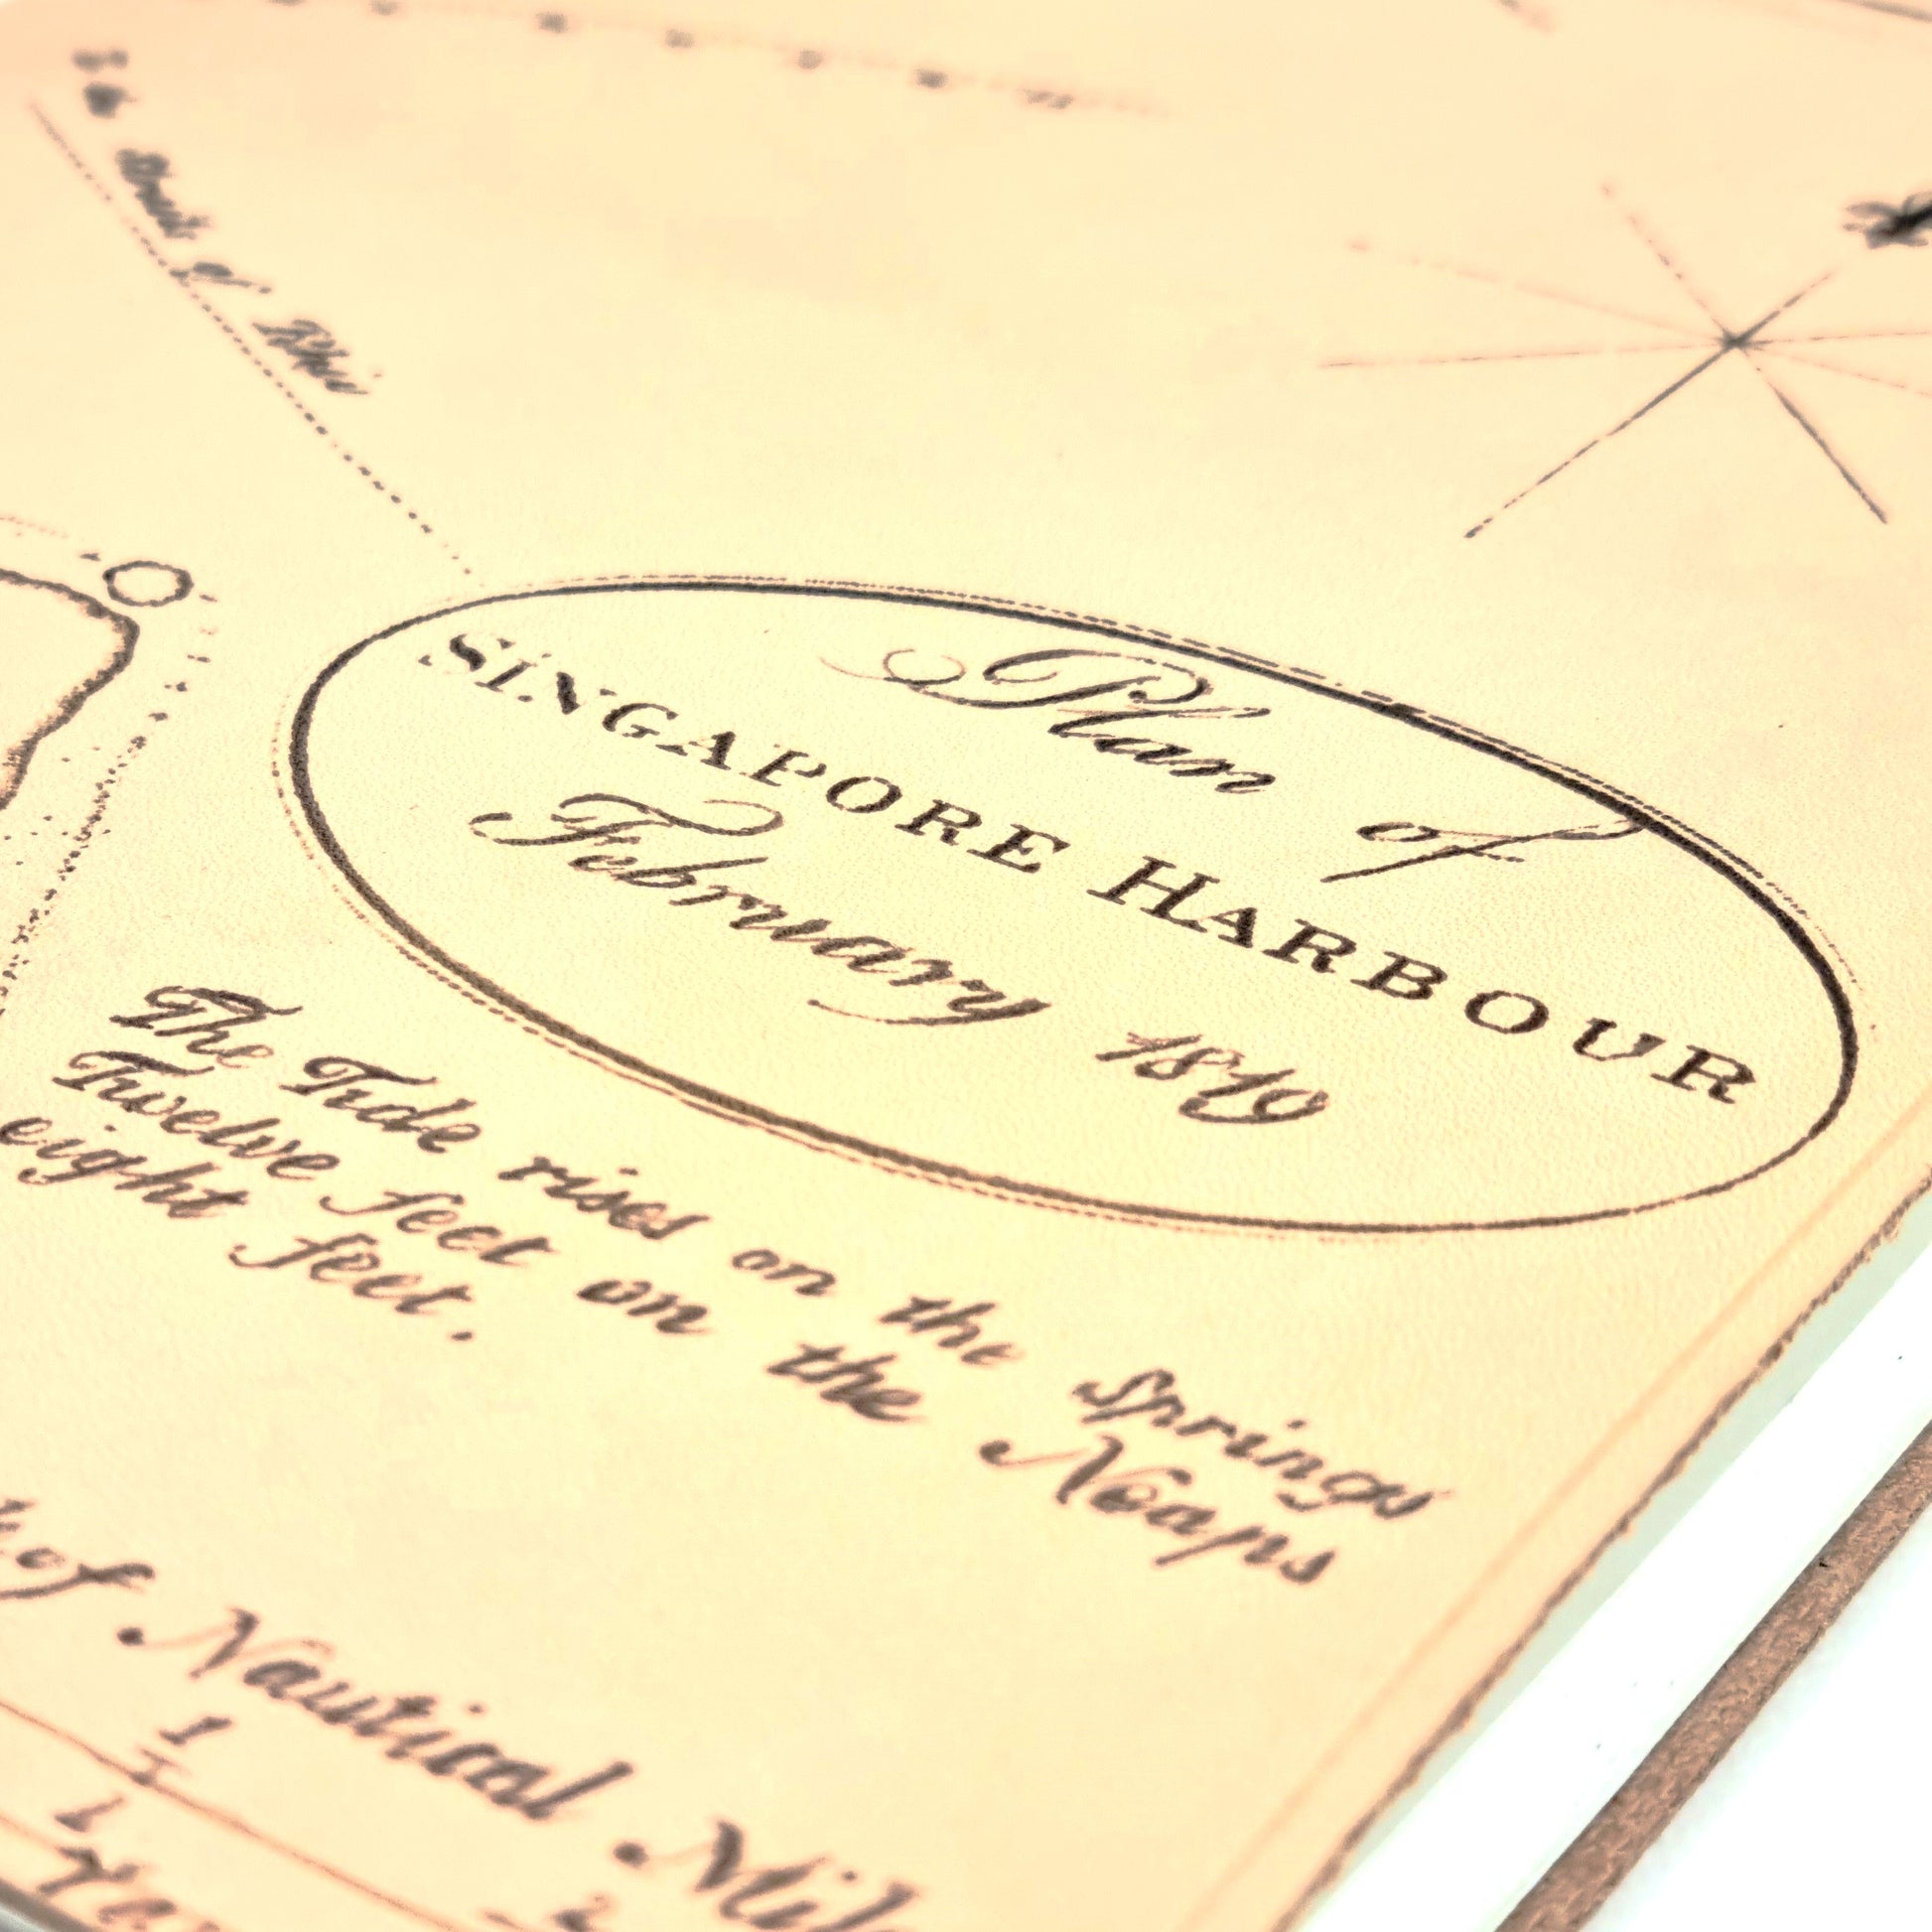 Plan of
SINGAPORE HARBOUR
February 1819
The Tide rises on the Springs
Twelve feet on the Neaps
eight feet.
of Nautical
1
2